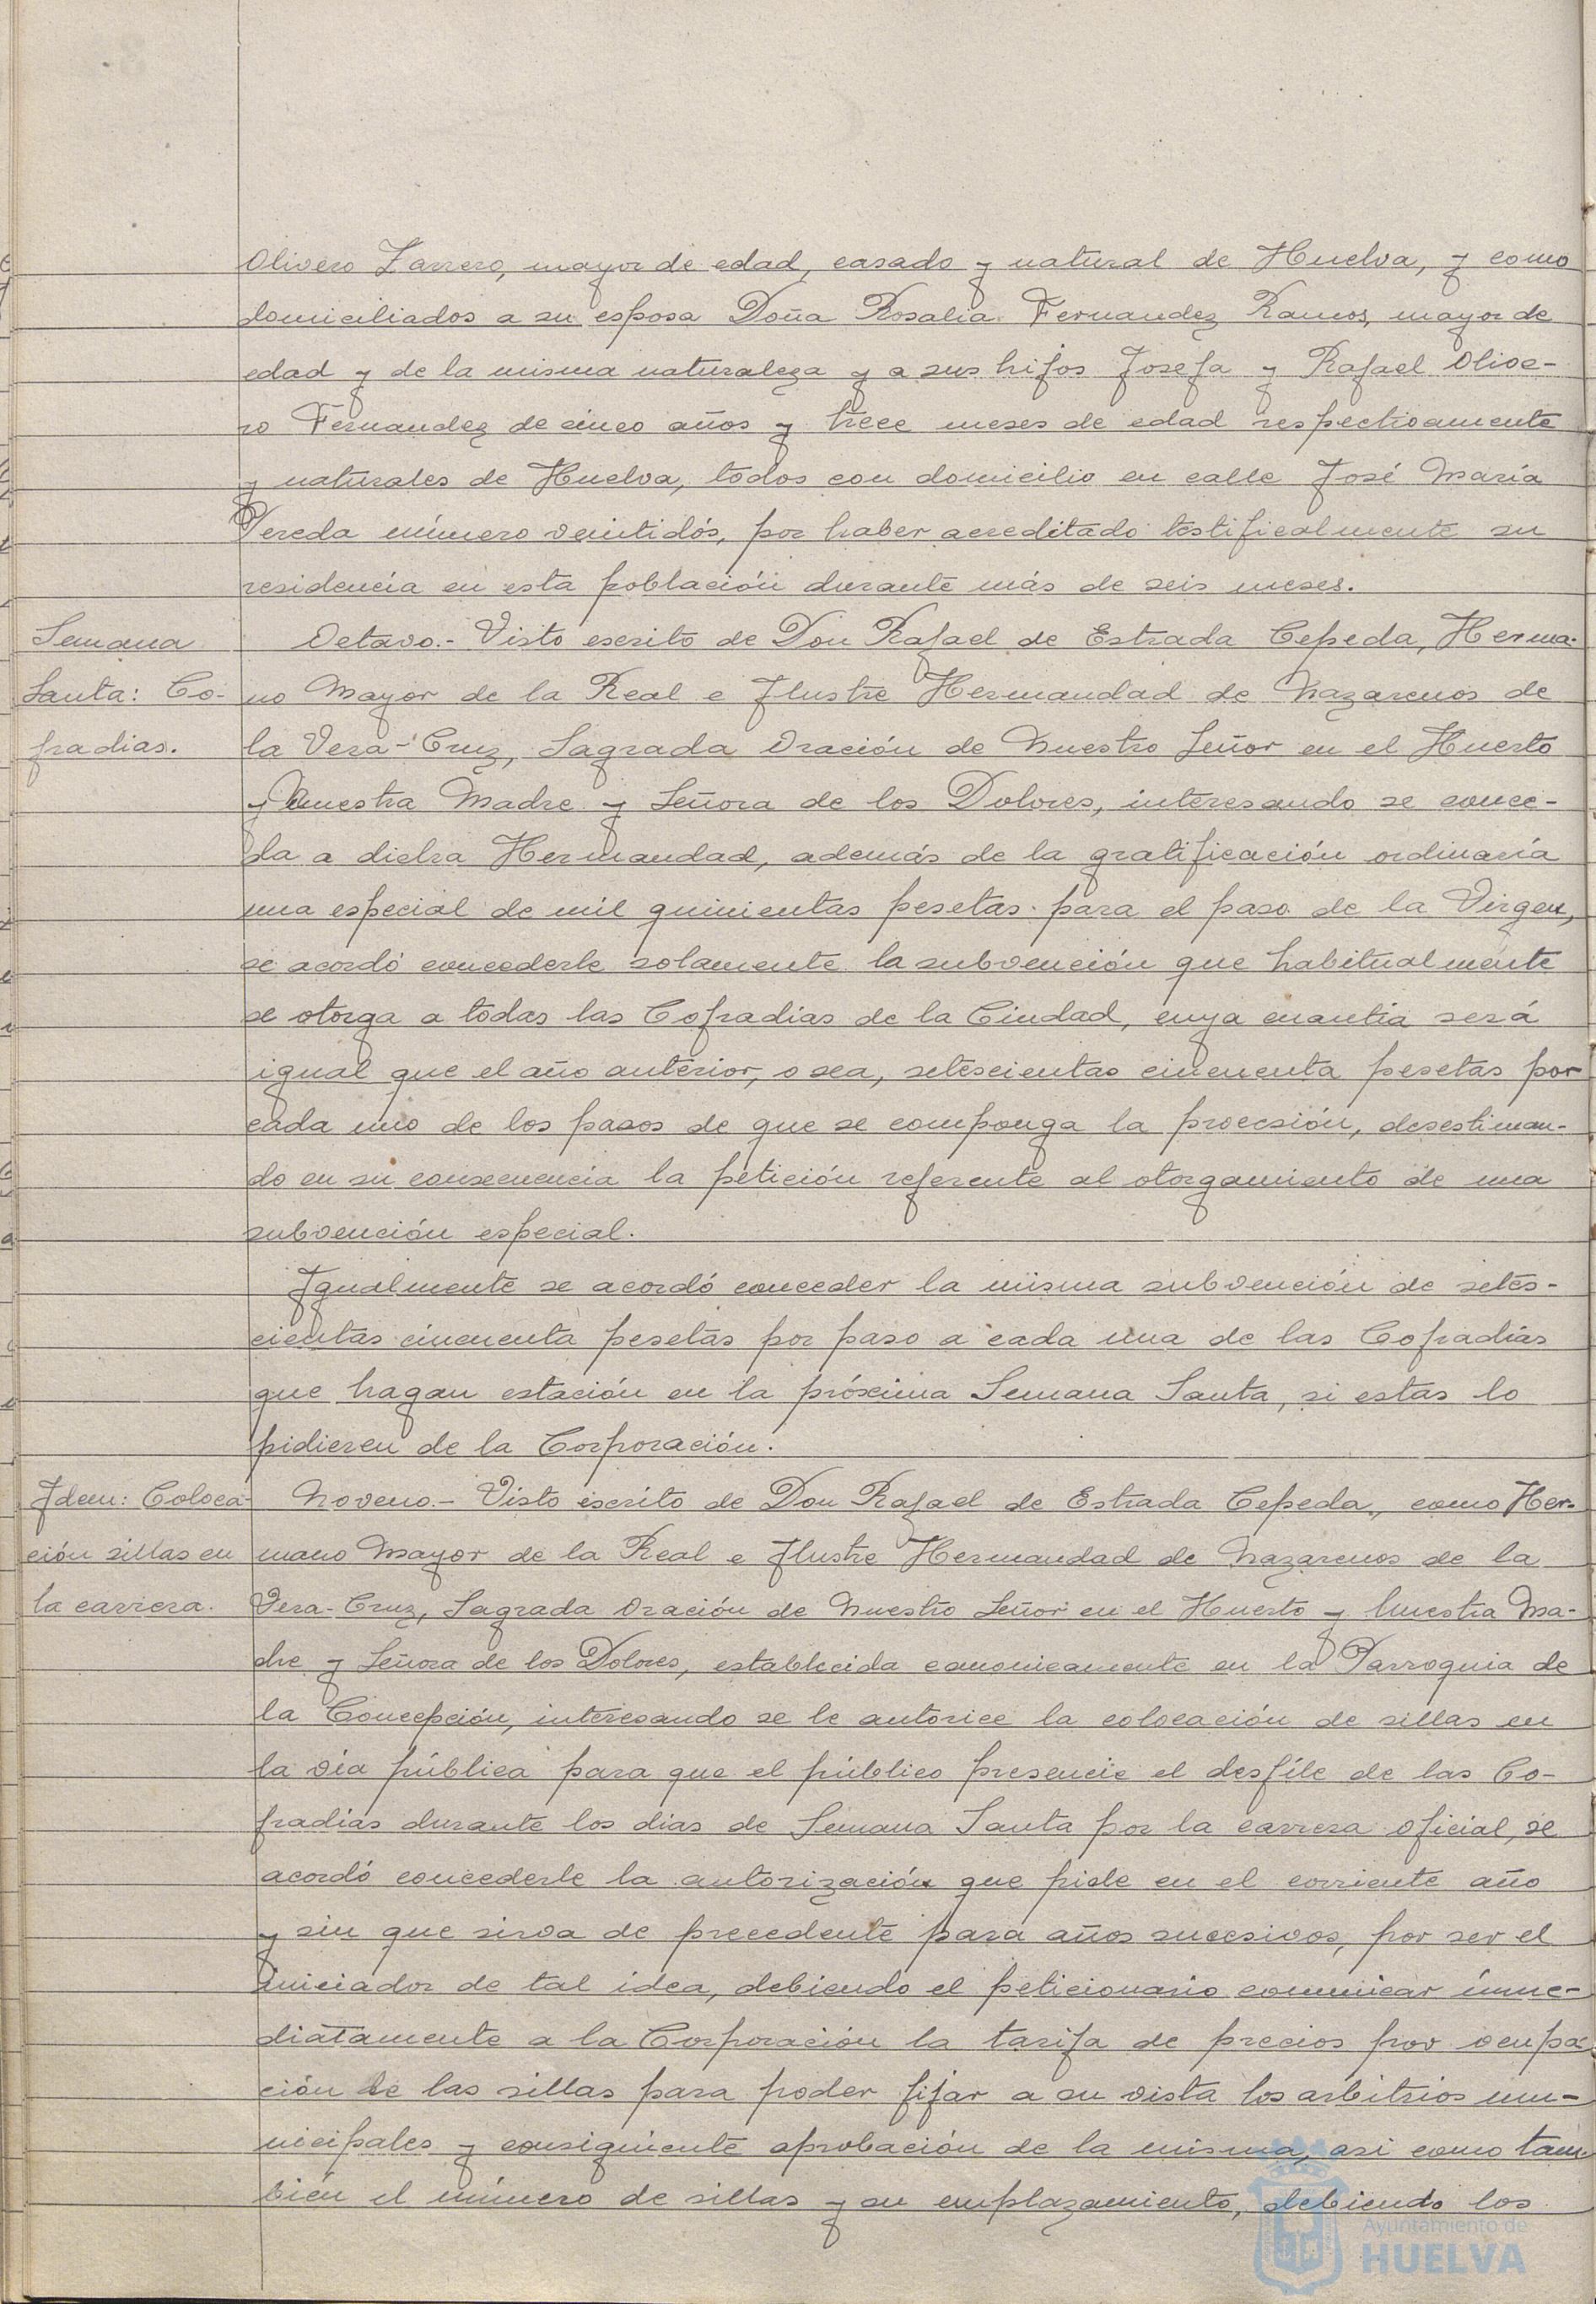 Olivero Zarrero, mayor de edad, casado y natural de Huelva, y como
domiciliados a su esposa Doña Rosalia Fernandez Ramos, mayor de
edad y de la misma naturaleza y a sus hijos Josefa y Rafael Olive-
ro Fernandez de cinco años y trece meses de edad respectivamente
y naturales de Huelva, todos con domicilio en calle José María
Pereda número veintidós, por haber acreditado testificalmente su
residencia en esta población durante más de seis meses.
Semana
Santa: Co-
fradias.
Octavo.- Visto escrito de Don Rafael de Estrada Cepeda, Herma-
no Mayor de la Real e Ilustre Hermandad de Nazarenos de
la Vera-Cruz, Sagrada Oración de Nuestro Señor en el Huerto
y Nuestra Madre y Señora de los Dolores, interesando se conce-
da a dicha Hermandad, además de la gratificación ordinaria
una especial de mil quinientas pesetas para el paso de la Virgen,
se acordó concederle solamente la subvención que habitualmente
se otorga a todas las Cofradías de la Ciudad, cuya cuantía será
igual que el año anterior, o sea, setescientas cincuenta pesetas por
cada uno de los pasos de que se componga la procesión, desestiman-
do en su consecuencia la petición referente al otorgamiento de una
subvención especial.
Igualmente se acordó conceder la misma subvención de setes-
cientas cincuenta pesetas por paso a cada una de las Cofradías
que hagan estación en la próxima Semana Santa, si estas lo
pidieren de la Corporación.
Idem: Coloca-
ción sillas en
la carrera.
Noveno.- Visto escrito de Don Rafael de Estrada Cepeda, como Her-
mano Mayor de la Real e Ilustre Hermandad de Nazarenos de la
Vera-Cruz, Sagrada Oración de Nuestro Señor en el Huerto y Nuestra Ma-
dre y Señora de los Dolores, establecida canonicamente en la Parroquia de
la Concepción, interesando se le autorice la colocación de sillas en
la vía pública para que el público presencie el desfile de las Co-
fradias durante los dias de Semana Santa por la carrera oficial, se
acordó concederle la autorización que pide en el corriente año
y sin que sirva de precedente para años sucesivos, por ser el
iniciador de tal idea, debiendo el peticionario comunicar inme-
diatamente a la Corporación la tarifa de precios por ocupa-
ción de las sillas para poder fijar a su vista los arbitrios mu-
nicipales y consiguiente aprobación de la misma, asi como tam-
bién el número de sillas y su emplazamiento, debiendo los
Ayuntamiento de
HUELVA